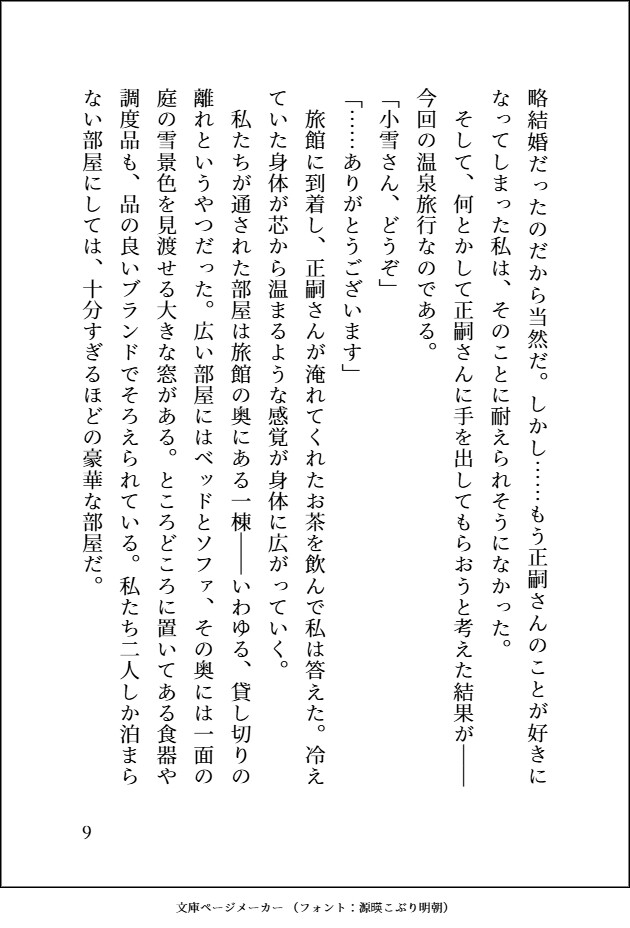 略結婚だったのだから当然だ。しかし……もう正嗣さんのことが好きに
なってしまった私は、そのことに耐えられそうになかった。
　そして、何とかして正嗣さんに手を出してもらおうと考えた結果が――
今回の温泉旅行なのである。
「小雪さん、どうぞ」
「……ありがとうございます」
　旅館に到着し、正嗣さんが淹れてくれたお茶を飲んで私は答えた。冷え
ていた身体が芯から温まるような感覚が身体に広がっていく。
　私たちが通された部屋は旅館の奥にある一棟――いわゆる、貸し切りの
離れというやつだった。広い部屋にはベッドとソファ、その奥には一面の
庭の雪景色を見渡せる大きな窓がある。ところどころに置いてある食器や
調度品も、品の良いブランドでそろえられている。私たち二人しか泊まら
ない部屋にしては、十分すぎるほどの豪華な部屋だ。
9
文庫ページメーカー（フォント：源暎こぶり明朝）